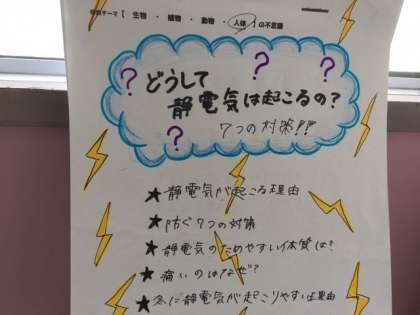 研究テーマ【 生物 ・ 植物 ・ 動物 ・ 人体 】の不思議
? ? ?
どうして
静電気は起こるの?
7つの対策!!
★静電気が起こる理由
★防ぐ7つの対策
★静電気のためやすい体質は?
★痛いのはなぜ?
★冬に静電気が起こりやすい理由